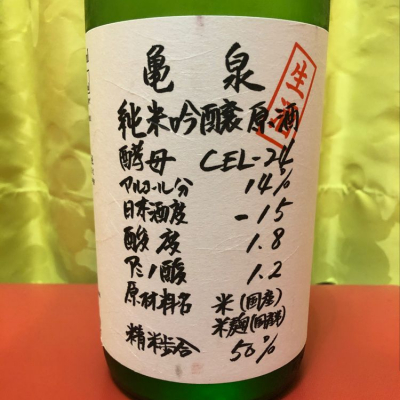 亀泉
生酒
純米吟醸原酒
酵母 CEL-24
アルコール分 14%
日本酒度 -15
酸度 1.8
アミノ酸 1.2
原材料名 米(国産)
米麹(国産米)
精米歩合 50%